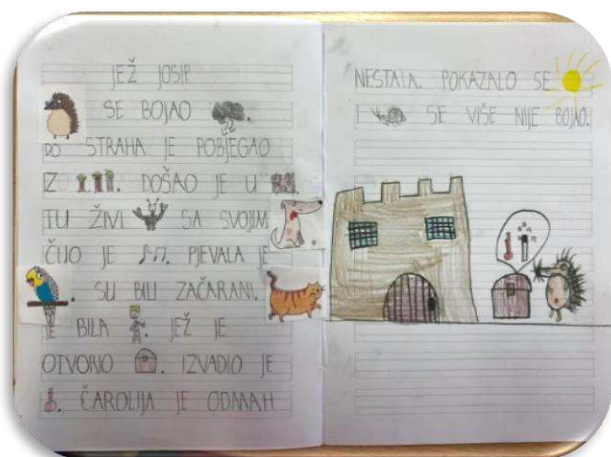 JEŽ JOSIP
SE BOJAO
OD STRAHA JE POBJEGAO
IZ . DOŠAO JE U .
TU ŽIVI SA SVOJIM
ČUO JE . PJEVALA JE
. SU BILI ZAČARANI.
JE BILA . JEŽ JE
OTVORIO . IZVADIO JE
. ČAROLIJA JE ODMAH
NESTALA. POKAZALO SE
SE VIŠE NIJE BOJAO.